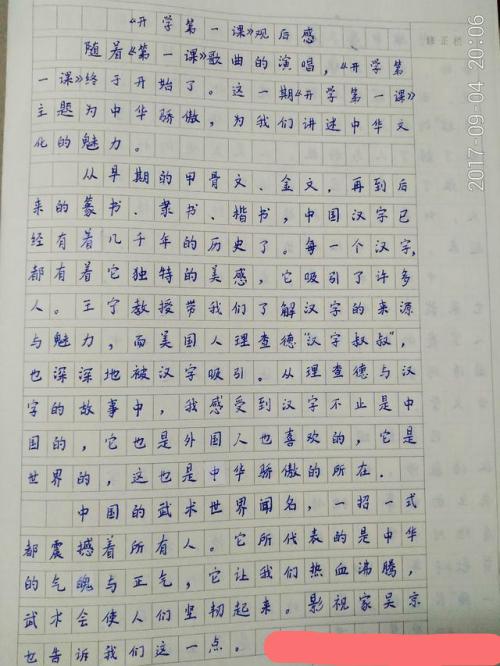 《开学第一课》观后感
随着《第一课》歌曲的演唱，《开学第
一课》终于开始了。这一期《开学第一课》
主题为中华骄傲，为我们讲述中华文
化的魅力。
从早期的甲骨文、金文，再到后
来的篆书、隶书、楷书，中国汉字已
经有着几千年的历史了。每一个汉字，
都有着它独特的美感，它吸引了许多
人。王宁教授带我们了解汉字的来源
与魅力，而美国人理查德“汉字叔叔”，
也深深地被汉字吸引。从理查德与汉
字的故事中，我感受到汉字不止是中
国的，它也是外国人也喜欢的，它是
世界的，这也是中华骄傲的所在．
中国的武术世界闻名，一招一式
都震撼着所有人。它所代表的是中华
的气魄与正气，它让我们热血沸腾，
武术会使人们坚韧起来。影视家吴京
也告诉我们这一点。
修正栏
2017-09-04 20:06